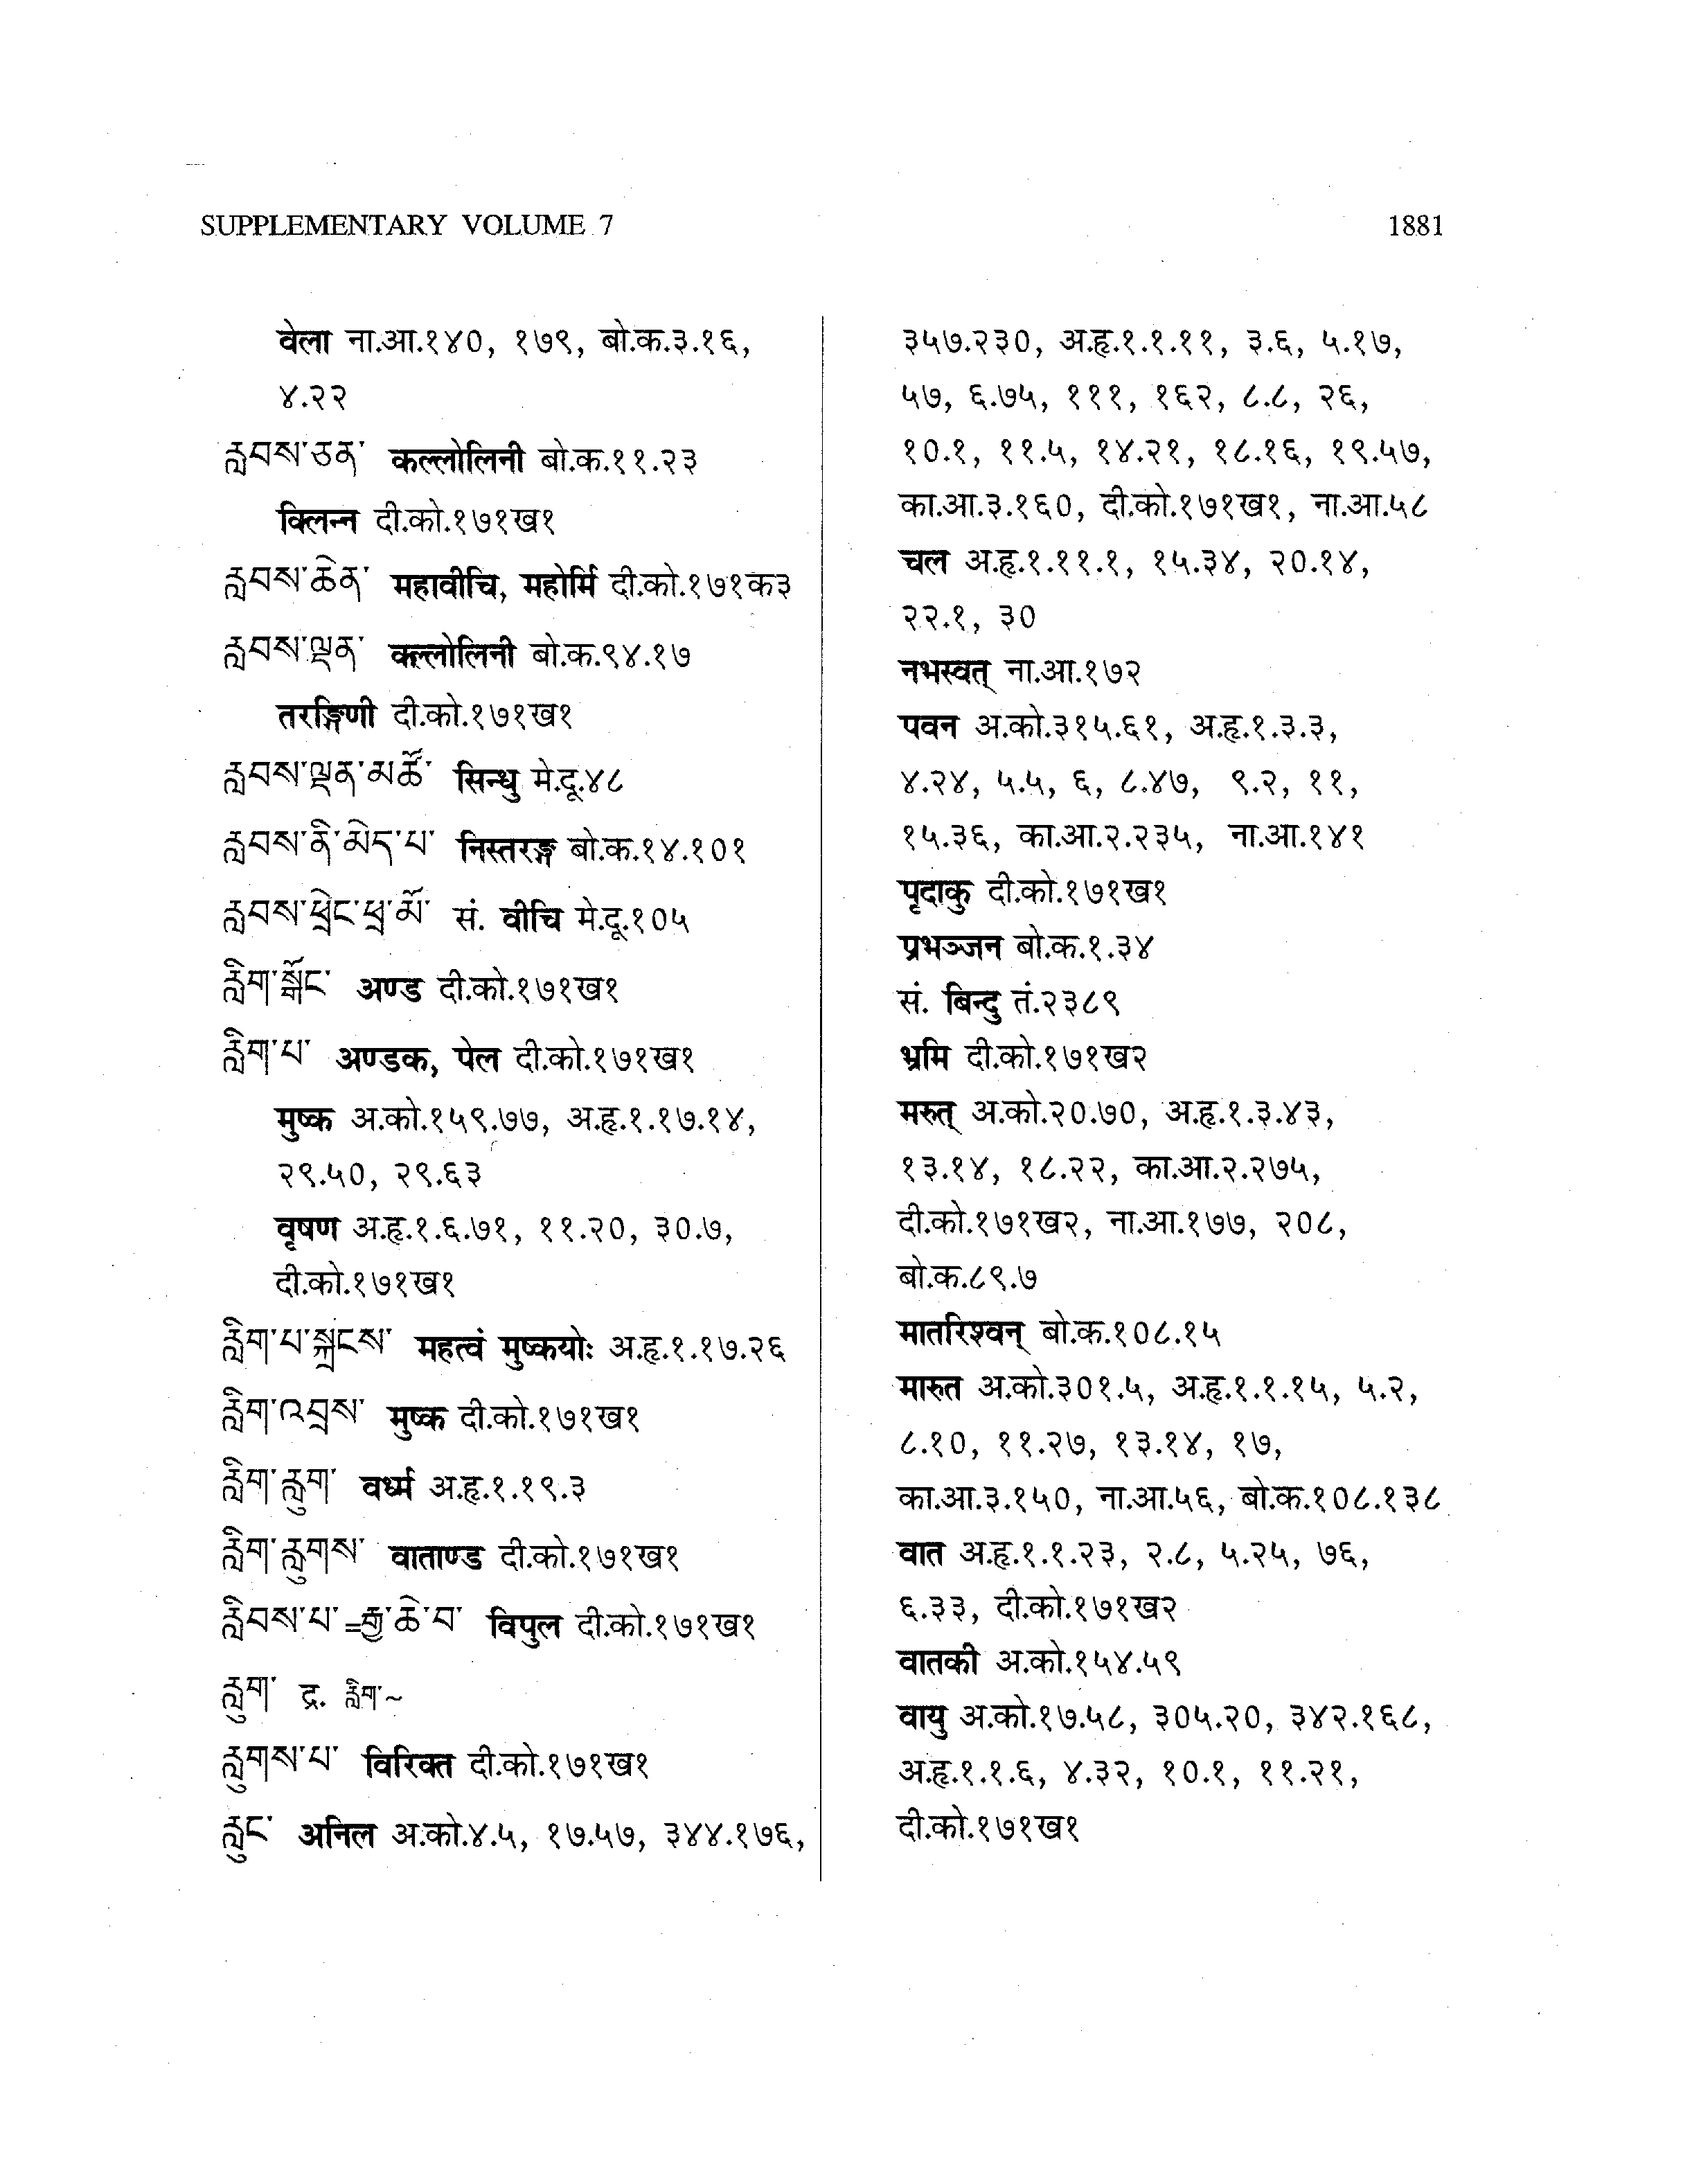 SUPPLEMENTARY VOLUME 7
1881
वेला ना.आ.१४०, १७९, बो.क.३.१६,
४.२२
རླབས་ཅན་ कल्लोलिनी बो.क.११.२३
क्लिन्न दी.को.१७१ख१
རླབས་ཆེན་ महावीचि, महोर्मि दी.को.१७१क३
རླབས་ལྡན་ कल्लोलिनी बो.क.९४.१७
तरङ्गिणी दी.को.१७१ख१
རླབས་ལྡན་མཚོ་ सिन्धु मे.दू.४८
རླབས་ནི་མེད་པ་ निस्तरङ्ग बो.क.१४.१०१
རླབས་ཕྲེང་ཕྲ་མོ་ सं. वीचि मे.दू.१०५
རླིག་སྒོང་ अण्ड दी.को.१७१ख१
རླིག་པ་ अण्डक, पेल दी.को.१७१ख१
मुष्क अ.को.१५९.७७, अ.हृ.१.१७.१४,
२९.५०, २९.६३
वृषण अ.हृ.१.६.७१, ११.२०, ३०.७,
दी.को.१७१ख१
རླིག་པ་སྐྲངས་ महत्वं मुष्कयोः अ.हृ.१.१७.२६
རླིག་འབྲས་ मुष्क दी.को.१७१ख१
རླིག་རླུག་ वर्ध्म अ.हृ.१.१९.३
རླིག་རླུགས་ वाताण्ड दी.को.१७१ख१
རླིབས་པ་=རྒྱ་ཆེ་བ་ विपुल दी.को.१७१ख१
རླུག་ द्र. རླིག་~
རླུགས་པ་ विरिक्त दी.को.१७१ख१
རླུང་ अनिल अ.को.४.५, १७.५७, ३४४.१७६,
३५७.२३०, अ.हृ.१.१.११, ३.६, ५.१७,
५७, ६.७५, १११, १६२, ८.८, २६,
१०.१, ११.५, १४.२१, १८.१६, १९.५७,
का.आ.३.१६०, दी.को.१७१ख१, ना.आ.५८
चल अ.हृ.१.११.१, १५.३४, २०.१४,
२२.१, ३०
नभस्वत् ना.आ.१७२
पवन अ.को.३१५.६१, अ.हृ.१.३.३,
४.२४, ५.५, ६, ८.४७, ९.२, ११,
१५.३६, का.आ.२.२३५, ना.आ.१४१
पृदाकु दी.को.१७१ख१
प्रभञ्जन बो.क.१.३४
सं. बिन्दु तं.२३८९
भ्रमि दी.को.१७१ख२
मरुत् अ.को.२०.७०, अ.हृ.१.३.४३,
१३.१४, १८.२२, का.आ.२.२७५,
दी.को.१७१ख२, ना.आ.१७७, २०८,
बो.क.८९.७
मातरिश्वन् बो.क.१०८.१५
मारुत अ.को.३०१.५, अ.हृ.१.१.१५, ५.२,
८.१०, ११.२७, १३.१४, १७,
का.आ.३.१५०, ना.आ.५६, बो.क.१०८.१३८
वात अ.हृ.१.१.२३, २.८, ५.२५, ७६,
६.३३, दी.को.१७१ख२
वातकी अ.को.१५४.५९
वायु अ.को.१७.५८, ३०५.२०, ३४२.१६८,
अ.हृ.१.१.६, ४.३२, १०.१, ११.२१,
दी.को.१७१ख१